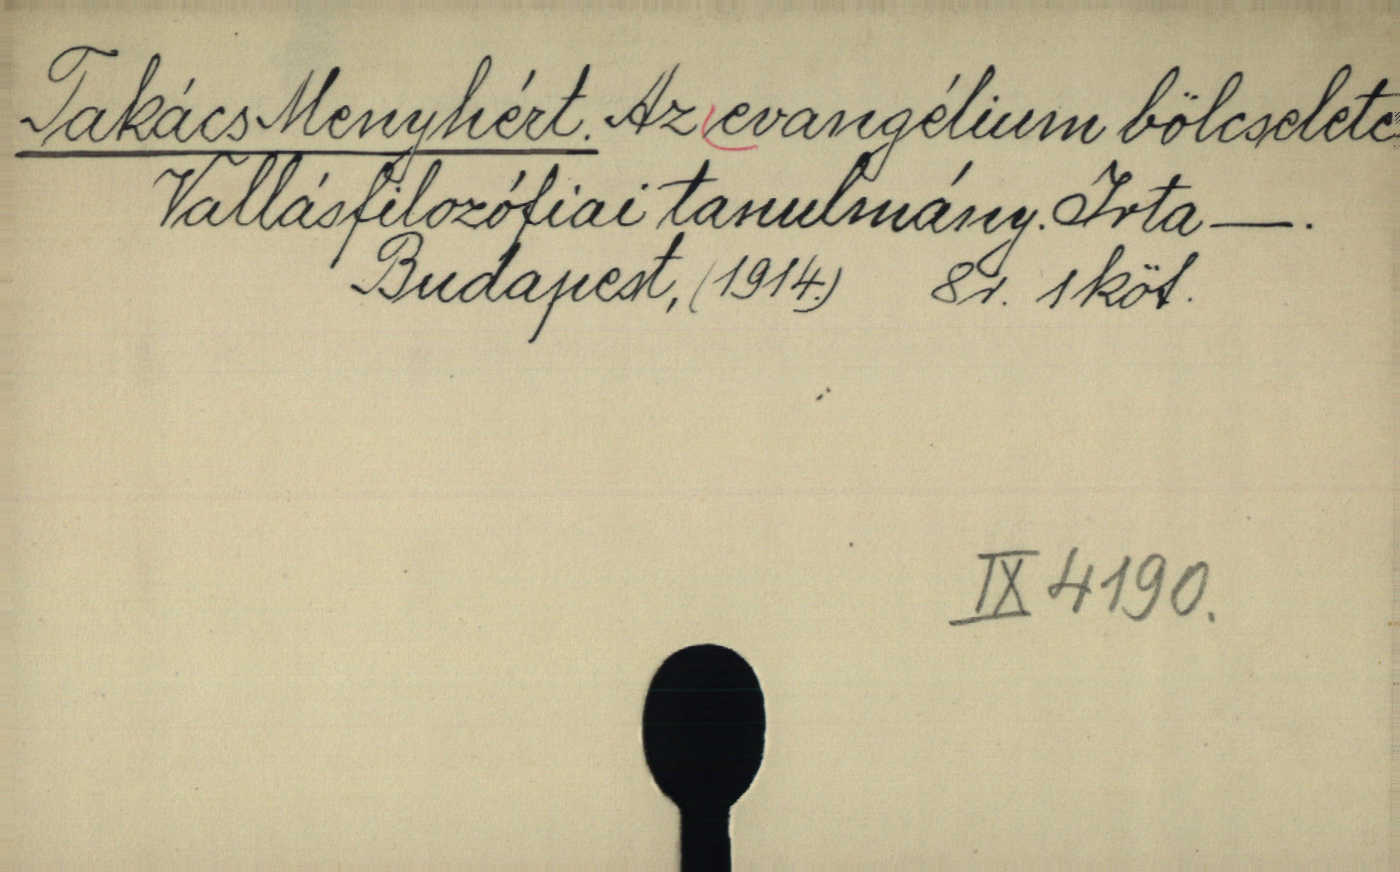 Takács Menyhért. Az evangélium bölcselete
Vallásfilozófiai tanulmány. Irta —.
Budapest, (1914.) 8r. 1 köt.
IX 4190.